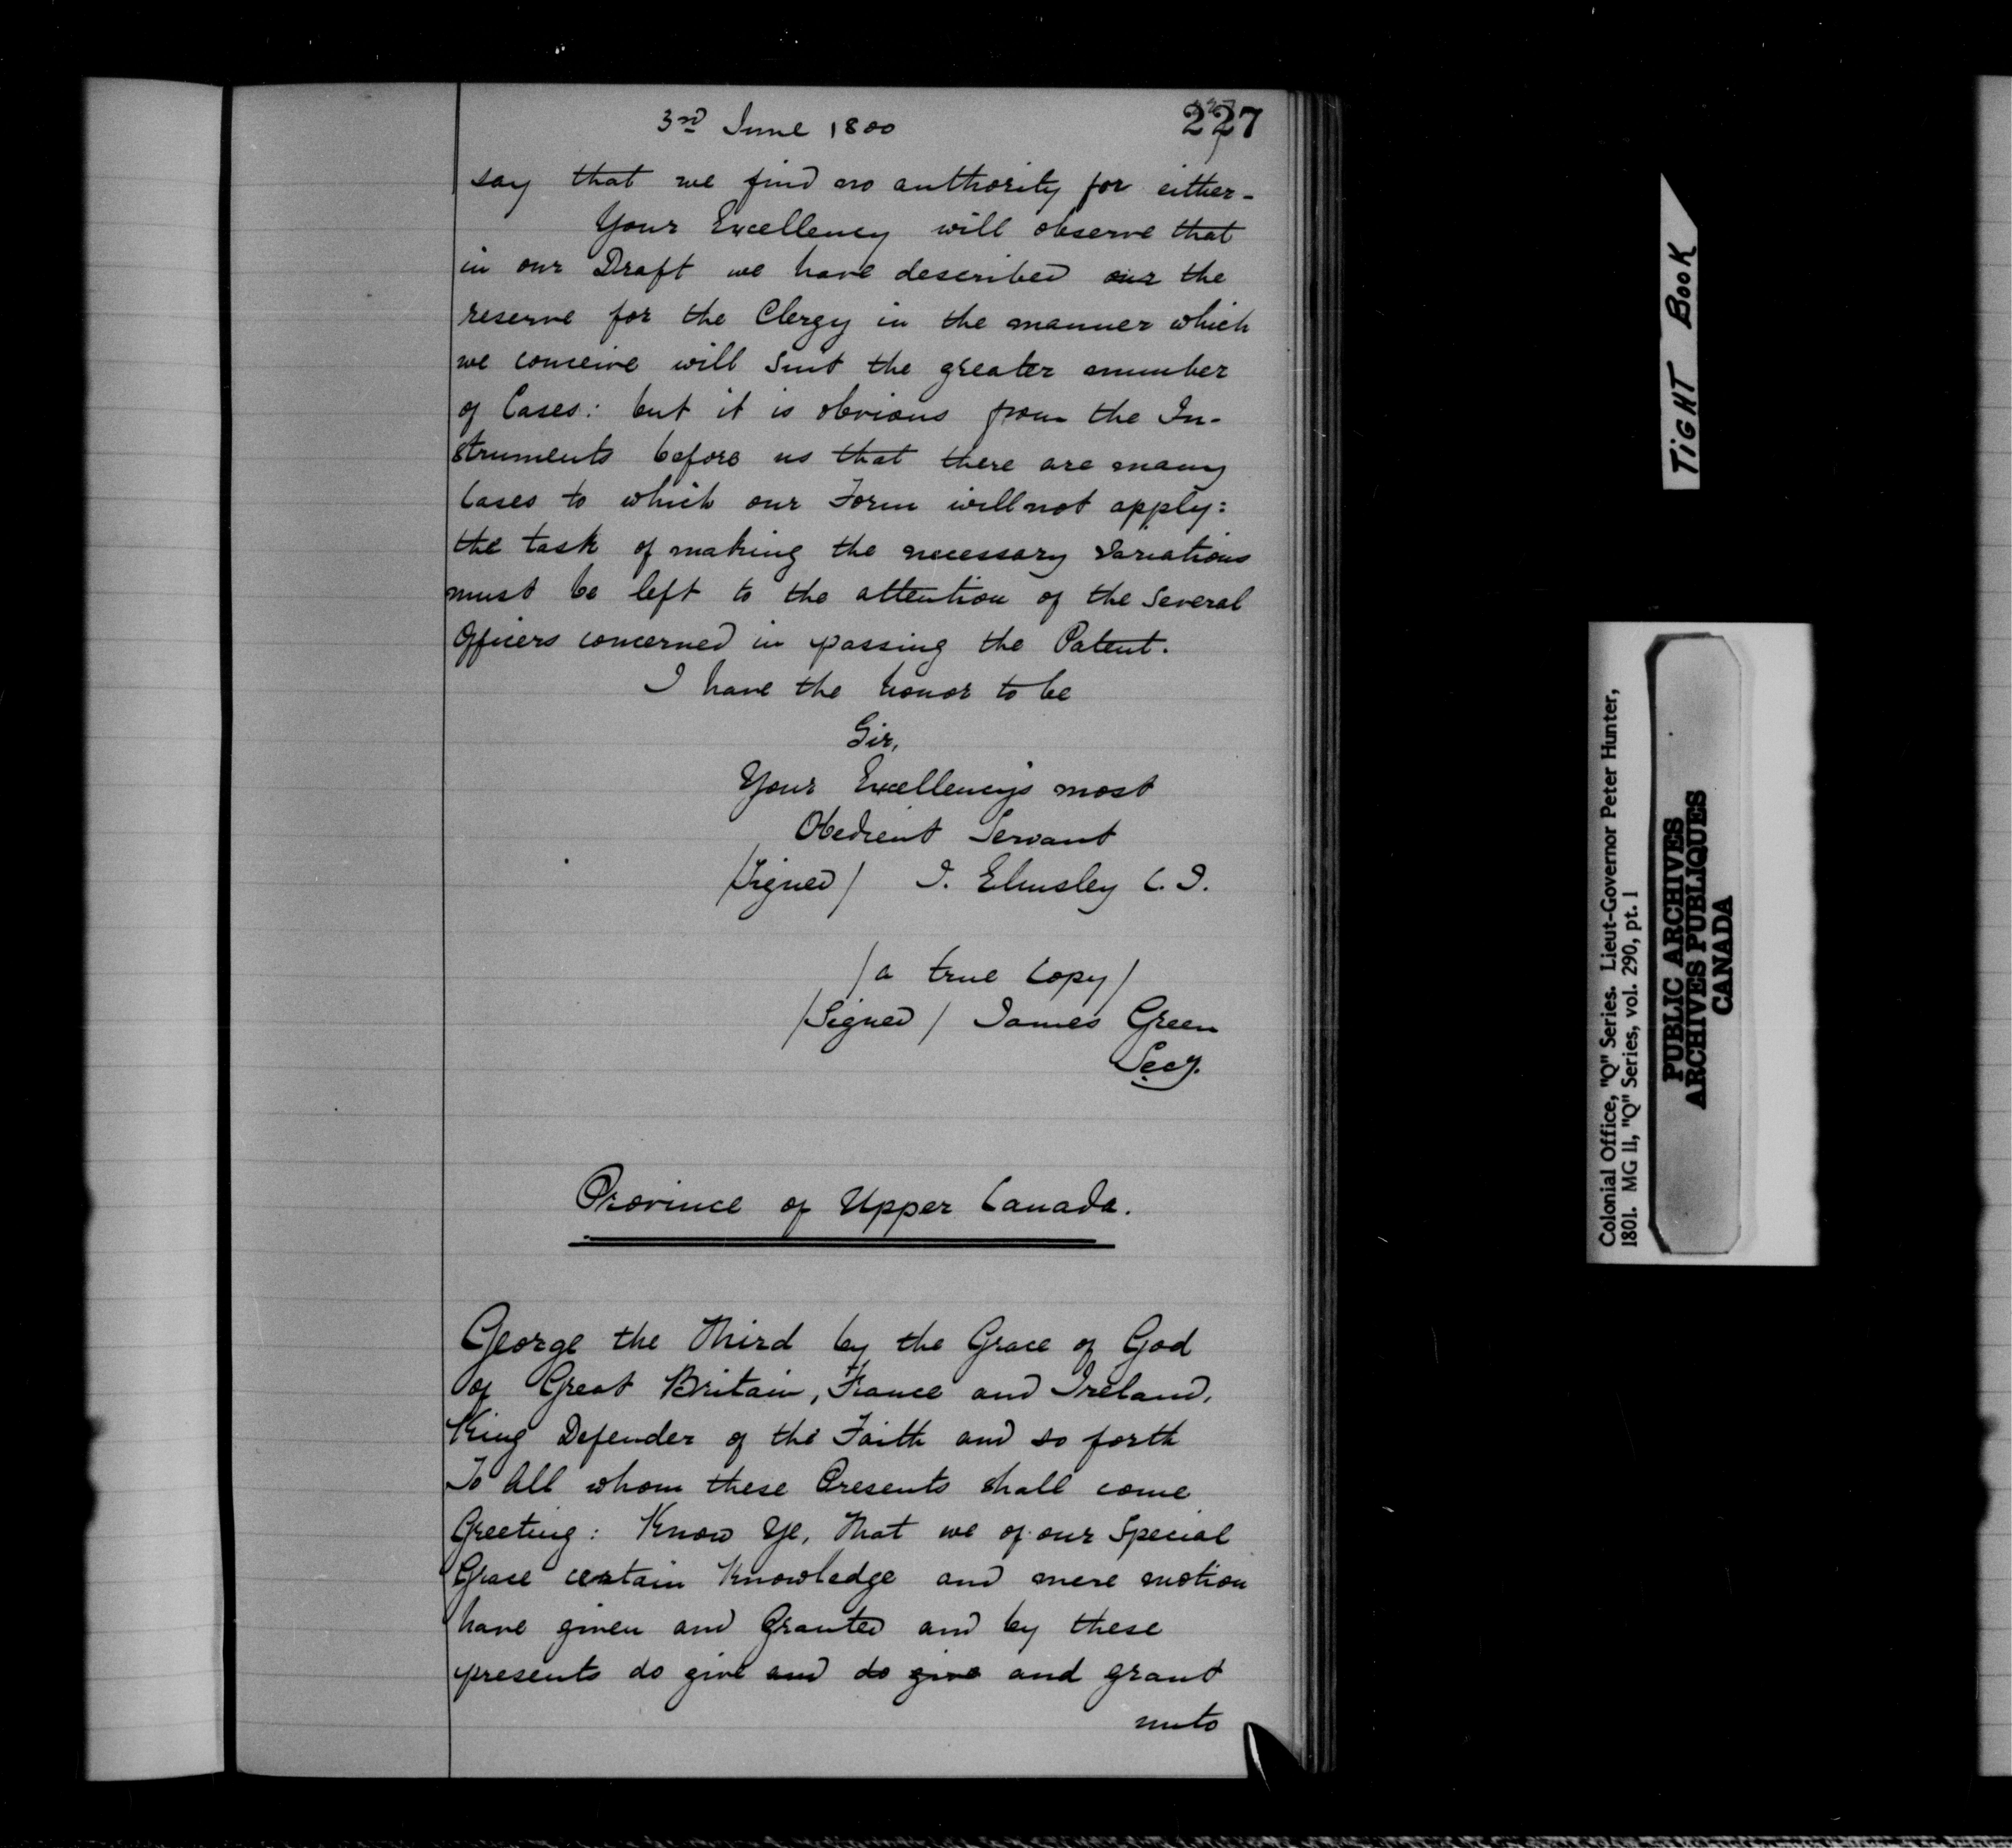 3rd June 1800
227
say that we find no authority for either-
Your Excellency will observe that
in our Draft we have described our the
reserve for the Clergy in the manner which
we conceive will suit the greater number
of Cases: but it is obvious from the In-
struments before us that there are many
Cases to which our Form will not apply:
the task of making the necessary variations
must be left to the attention of the Several
Officers concerned in passing the Patent.
I have the honor to be
Sir,
Your Excellency's most
Obedient Servant
/Signed/ J. Elmsley C.J.
/a true Copy/
/Signed/ James Green
Secy.
Province of Upper Canada.
George the Third by the Grace of God
of Great Britain, France and Ireland,
King Defender of the Faith and so forth
To All whom these Presents shall come
Greeting: Know Ye, That we of our Special
Grace certain Knowledge and mere motion
have given and Granted and by these
presents do give and do give and grant
unto
TIGHT BOOK
Colonial Office, "Q" Series. Lieut-Governor Peter Hunter,
1801. MG 11, "Q" Series, vol. 290, pt. 1
PUBLIC ARCHIVES
ARCHIVES PUBLIQUES
CANADA